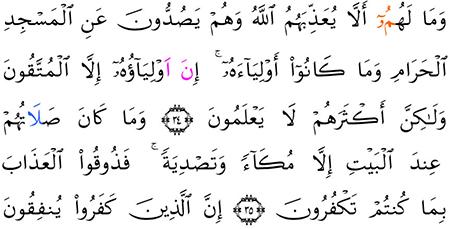 وَمَا لَهُمُۥٓ أَلَّا يُعَذِّبَهُمُ ٱللَّهُ وَهُمْ يَصُدُّونَ عَنِ ٱلْمَسْجِدِ
ٱلْحَرَامِ وَمَا كَانُوٓا۟ أَوْلِيَآءَهُۥٓ ۚ إِنَ اَوْلِيَآؤُهُۥٓ إِلَّا ٱلْمُتَّقُونَ
وَلَٰكِنَّ أَكْثَرَهُمْ لَا يَعْلَمُونَ ۝٣٤ وَمَا كَانَ صَلَاتُهُمْ
عِندَ ٱلْبَيْتِ إِلَّا مُكَآءً وَتَصْدِيَةً ۚ فَذُوقُوا۟ ٱلْعَذَابَ
بِمَا كُنتُمْ تَكْفُرُونَ ۝٣٥ إِنَّ ٱلَّذِينَ كَفَرُوا۟ يُنفِقُونَ